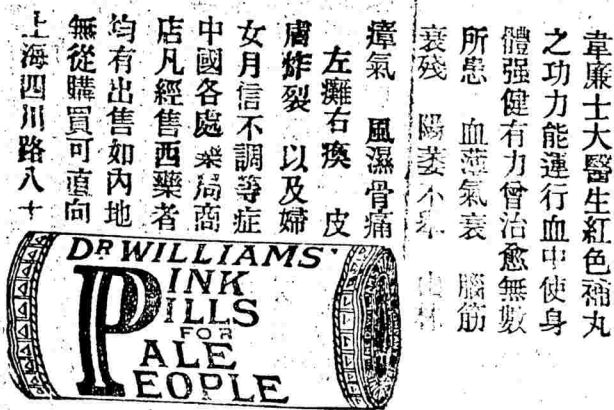 韋廉士大醫生紅色補丸
之功力能運行血中使身
體强健有力曾治愈無數
所患 血薄氣衰 腦筋
衰殘 陽萎不舉
瘴氣 風濕骨痛
左癱右瘓 皮
膚炸裂 以及婦
女月信不調等症
中國各處藥局商
店凡經售西藥者
均有出售如內地
無從購買可直向
上海四川路八十
DR WILLIAMS'
PINK
PILLS
FOR
PALE
PEOPLE